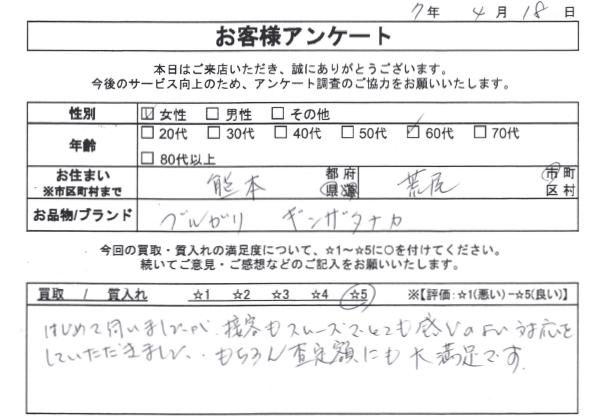 7年 4月 18日
お客様アンケート
本日はご来店いただき、誠にありがとうございます。
今後のサービス向上のため、アンケート調査のご協力をお願いいたします。
性別 ☑ 女性 □ 男性 □ その他
年齢 □ 20代 □ 30代 □ 40代 □ 50代 ☑ 60代 □ 70代
□ 80代以上
お住まい ※市区町村まで 熊本 都 府 県 道 荒尾 市 町 区 村
お品物/ブランド ブルガリ ギンザタナカ
今回の買取・質入れの満足度について、☆1～☆5に○を付けてください。
続いてご意見・ご感想などのご記入をお願いいたします。
買取 / 質入れ ☆1 ☆2 ☆3 ☆4 ☆5 ※【評価:☆1(悪い)-☆5(良い)】
はじめて伺いましたが、接客もスムーズでとても感じのよい対応を
していただきました。もちろん査定額にも大満足です。